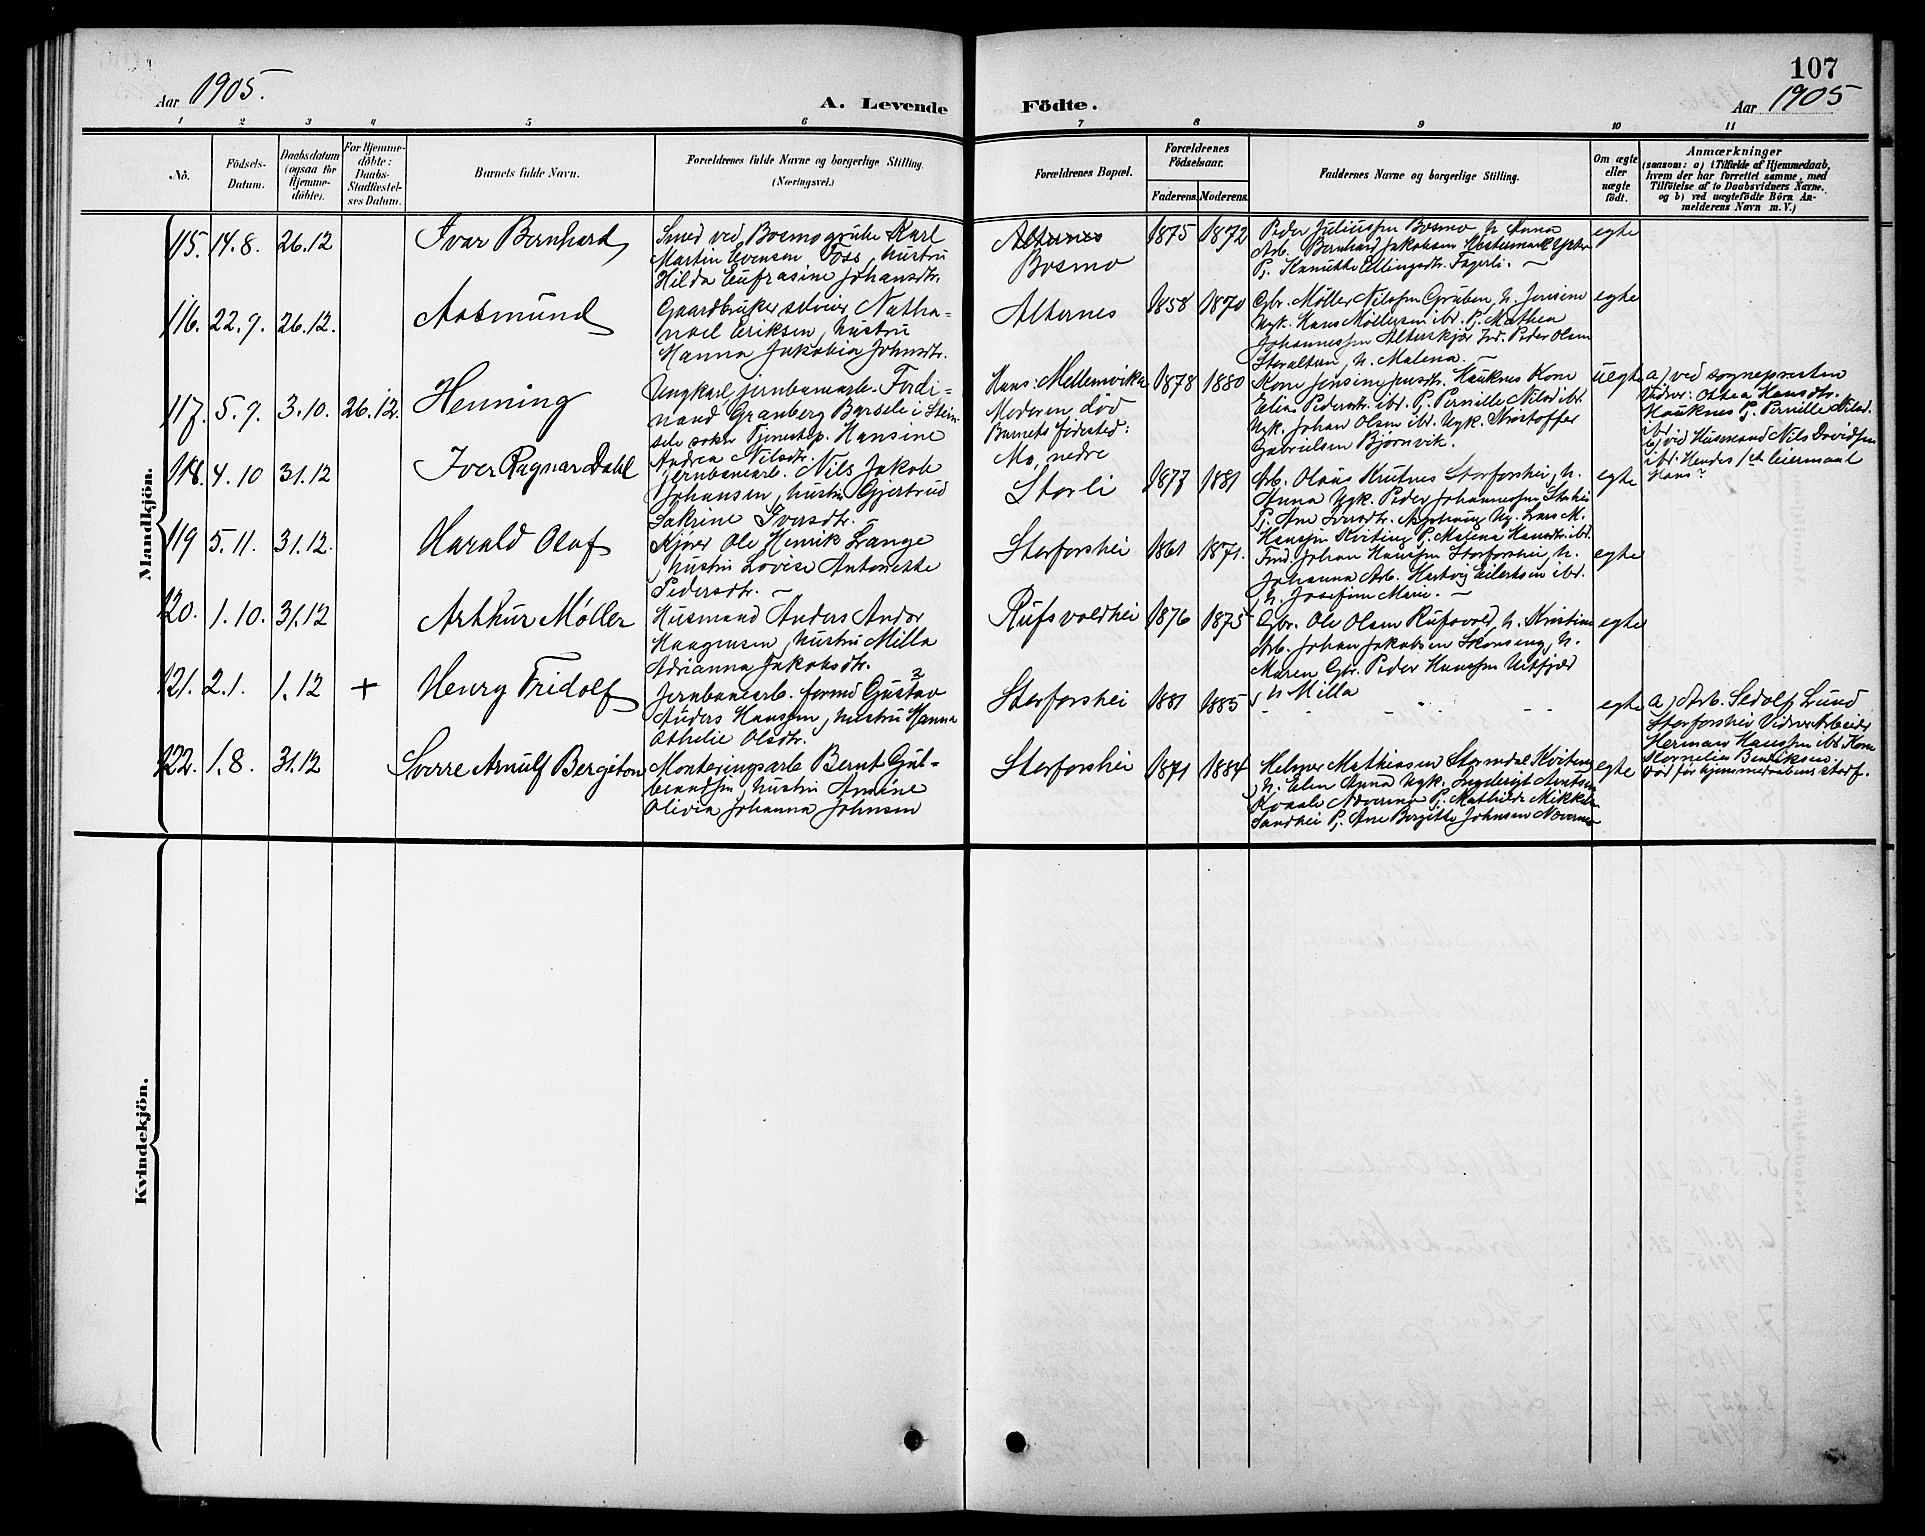 107
Aar 1905.
A. Levende
Födte.
Aar 1905
1 2 3 4 5 6 7 8 9 10 11
No.
Födsels-
Datum.
Daabsdatum
(ogsaa for
Hjemme-
döbte).
For Hjemme-
döbte:
Daabs-
Stadfæstel-
ses Datum.
Barnets fulde Navn.
Forældrenes fulde Navne og borgerlige Stilling.
(Næringsvei.)
Forældrenes Bopæl.
Forældrenes
Födselsaar.
Faderens. Moderens.
Faddernes Navne og borgerlige Stilling.
Om ægte
eller
uægte
födt.
Anmærkninger
(saasom: a) i Tilfælde af Hjemmedaab,
hvem der har forrettet samme, med
Tilföielse af to Daabsvidners Navne.
og b) ved uægtefödte Börn An-
melderens Navn m. V.)
Mandkjön.
115. 14.8. 26.12 Ivar Bernhard
Smed ved Bosmo grube Karl
Martin Evensen Foss, hustru
Hilda Eufrasine Johansdtr.
Alternes
Bosmo
1875 1872
Peder Juliussen Bosmo h. Anna
Arb. Bernhard Jakobsen
Pj. Ellingsdtr. Fagerli. —
egte
116. 22.9. 26.12. Aasmund
Gaardbruker selveier Natha-
nael Eriksen, hustru
Hanna Jakobia Johnsdtr.
Alternes
1858 1870
Gbr. Møller Nilssen Gruben, h. Jensine
Ugk. Hans Møllersen ibd. Pj. Mathea
Johannessen Alterskjær Ind. Peder Olsen
Storalteren, h. Malena. —
egte
117. 5.9. 3.10. 26.12. Henning
Ungkarl, jernbanearb. Ferdi-
nand Granberg Barsele i Sten-
sele sokn Tjenestep. Hansine
Andrea Nilsdtr.
Hans: Mellemvika
Moderen død
Barnets fødested:
Mo, nedre
1878 1880
Kone Jensine Jensdtr. Hauknes Kone
Elia Pedersdtr. ibd. Pj. Pernille Nilsd. ibd.
Ugk. Johan Olsen ibd. Ugk. Kristoffer
Gabrielsen Bjørnvik.
uegte
a) ved sogneprästen
Vidner: Othea Hansdtr.
Hauknes Pj. Pernille Nilsd.
ibd.
b) vid Husmand Nils Davidsen
ibd. Hendes 1ste leiermaal
Hans?
118. 4.10 31.12 Iver Ragnar Dahl
Jernbanearb. Nils Jakob
Johansen, hustru Gjertrud
Sakrine Iversdtr.
Storli
1877 1881
Arb. Olaus Krutnes Storforshei, h.
Anna Ugk. Peder Johannessen
Pj. Ane Iversdtr. Ug. Lars M.
Hanssen Kviting Pj. Malena Hansdtr. ibd.
egte
119 5.11. 31.12. Harald Olaf
Kjører Ole Henrik Lange
, hustru Lovise Antonette
Pedersdtr. —
Storforshei
1861 1871.
Johan Hanssen Storforshei, h.
Johanna Arb. Hartvig Eilertsen ibd.
, h. Josefine Marie. —
egte
120. 1.10. 31.12 Arthur Møller
Husmand Anders Andor
Haagensen, hustru Milla
Adrianna Jakobsdtr.
Rufsvoldhei
1876 1875
Gbr. Ole Olsen Rufsvold, h. Kristine
Arb. Johan Jakobsen Skonseng, h.
Maren Gbr. Peder Hanssen
, h Milla
egte
121. 2.1. 1.12 + Henry Fridolf
Jernbanearb. formd Gustav
Anders Hanssen, hustru Hanna
Othelie Olsdtr.
Storforshei
1881 1885
- - - - - -
egte
a) Arb. Sedolf Lund
Storforshei Vidner Arbeider
Herman Hanssen ibd. Kone
Kornelia Bendiksen.
død før hjemmedaabens stadf.
122. 1.8. 31.12 Sverre Arnulf Bergiton
Monteringsarb Bernt Gul-
brandsen, hustru Amine
Olivia Johanna Johnsen
Storforshei
1871 1884
Helmer Mathiassen Stormdal Kviteng
, h. Elen Anna Ugk. Ingebrigt Arntsen
Nævernes Pj. Mathilde Mikkelsen
Sandhei Pj. Ane Bergitte Johnsen Nævernes
egte
Kvindekjön.